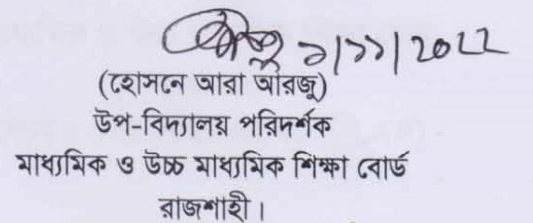 ১/১১/2022
(হোসনে আরা আরজু)
উপ-বিদ্যালয় পরিদর্শক
মাধ্যমিক ও উচ্চ মাধ্যমিক শিক্ষা বোর্ড
রাজশাহী।